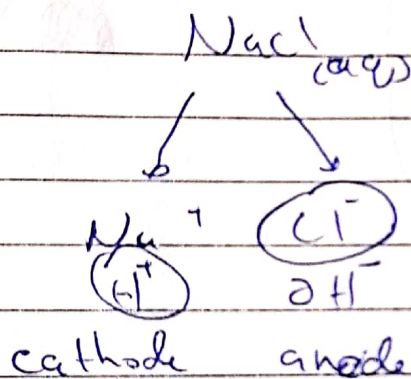 NaCl (aq)
Na+ Cl-
H+ OH-
cathode anode